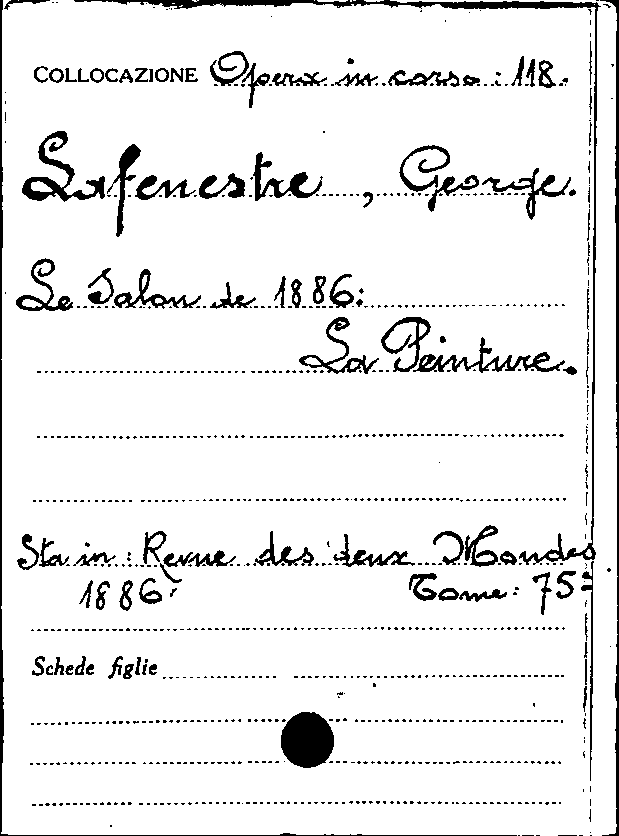 COLLOCAZIONE Opera in corso: 118.
Lafenestre, George.
Le Salon de 1886:
La Peinture.
Sta in: Revue des deux Mondes
1886. Tome: 75=
Schede figlie